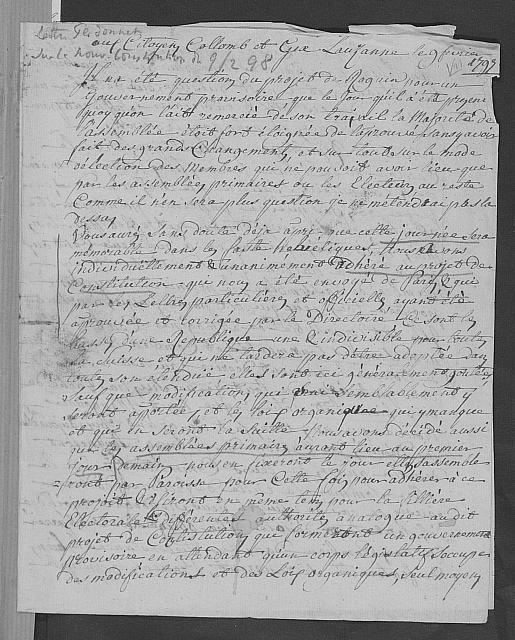 Lettre Perdonnet
sur la nouv. Constitution du 9/2 98
aux Citoyens Collomb et Cie Lausanne le 9 fevrier 1798
Il n'a été question du projet de Roguin pour un
Gouvernement provisoire, que le jour qu'il a été projeté
quoy qu'on l'ait remercié de son travail la Majorité de
l'assemblée étoit fort éloignée de l'aprouver sans y avoir
fait des grands Changements, et sur tout sur le mode
d'élection des Membres qui ne pouvoit avoir lieu que
par les assemblées primaires ou les Electeurs, au reste
Comme il n'en sera plus question je ne m'étendrai pas la
dessus
Vous aurez sans doute déja apris que cette journée sera
mémorable dans les faste helvétiques, Nous avons
individuëllement & unanimément adhéré au projet de
Constitution que nous a été envoyé de Paris & qui
par des Lettres particulieres et officielles ayant été
aprouvée et corrigée par le Directoire Ce sont les
bases d'une République une & indivisible pour toute
la Suisse et qui ne tardera pas d'être adoptée dans
toute son étendue elles sont ici généralement goutées
sauf quelques modifications qui vraisemblablement y
seront aportées, et les loix organiques qui y manquent
et qui en seront la suitte Nous avons décidé aussi
que les assemblées primaires auront lieu au premier
jour Demain nous en fixerons le jour elles s'assemble
=ront par Paroisse pour cette fois pour adhérer à ce
projet & seront en même tems pour la filliére
Electorale differentes authorités analogue au dit
projet de Constitution qui formeront un gouvernement
provisoire en attendant qu'un corps législatif s'occupe
des modifications et des Loix organiques, seul moyen